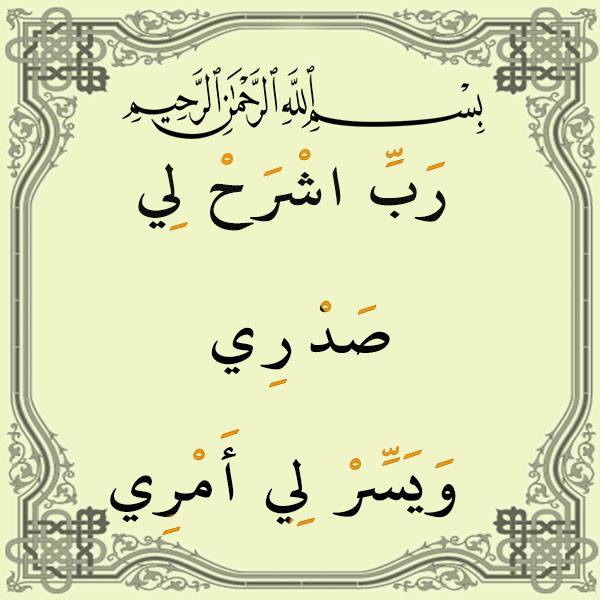 بِسْمِ اللَّهِ الرَّحْمَٰنِ الرَّحِيمِ
رَبِّ اشْرَحْ لِي
صَدْرِي
وَيَسِّرْ لِي أَمْرِي